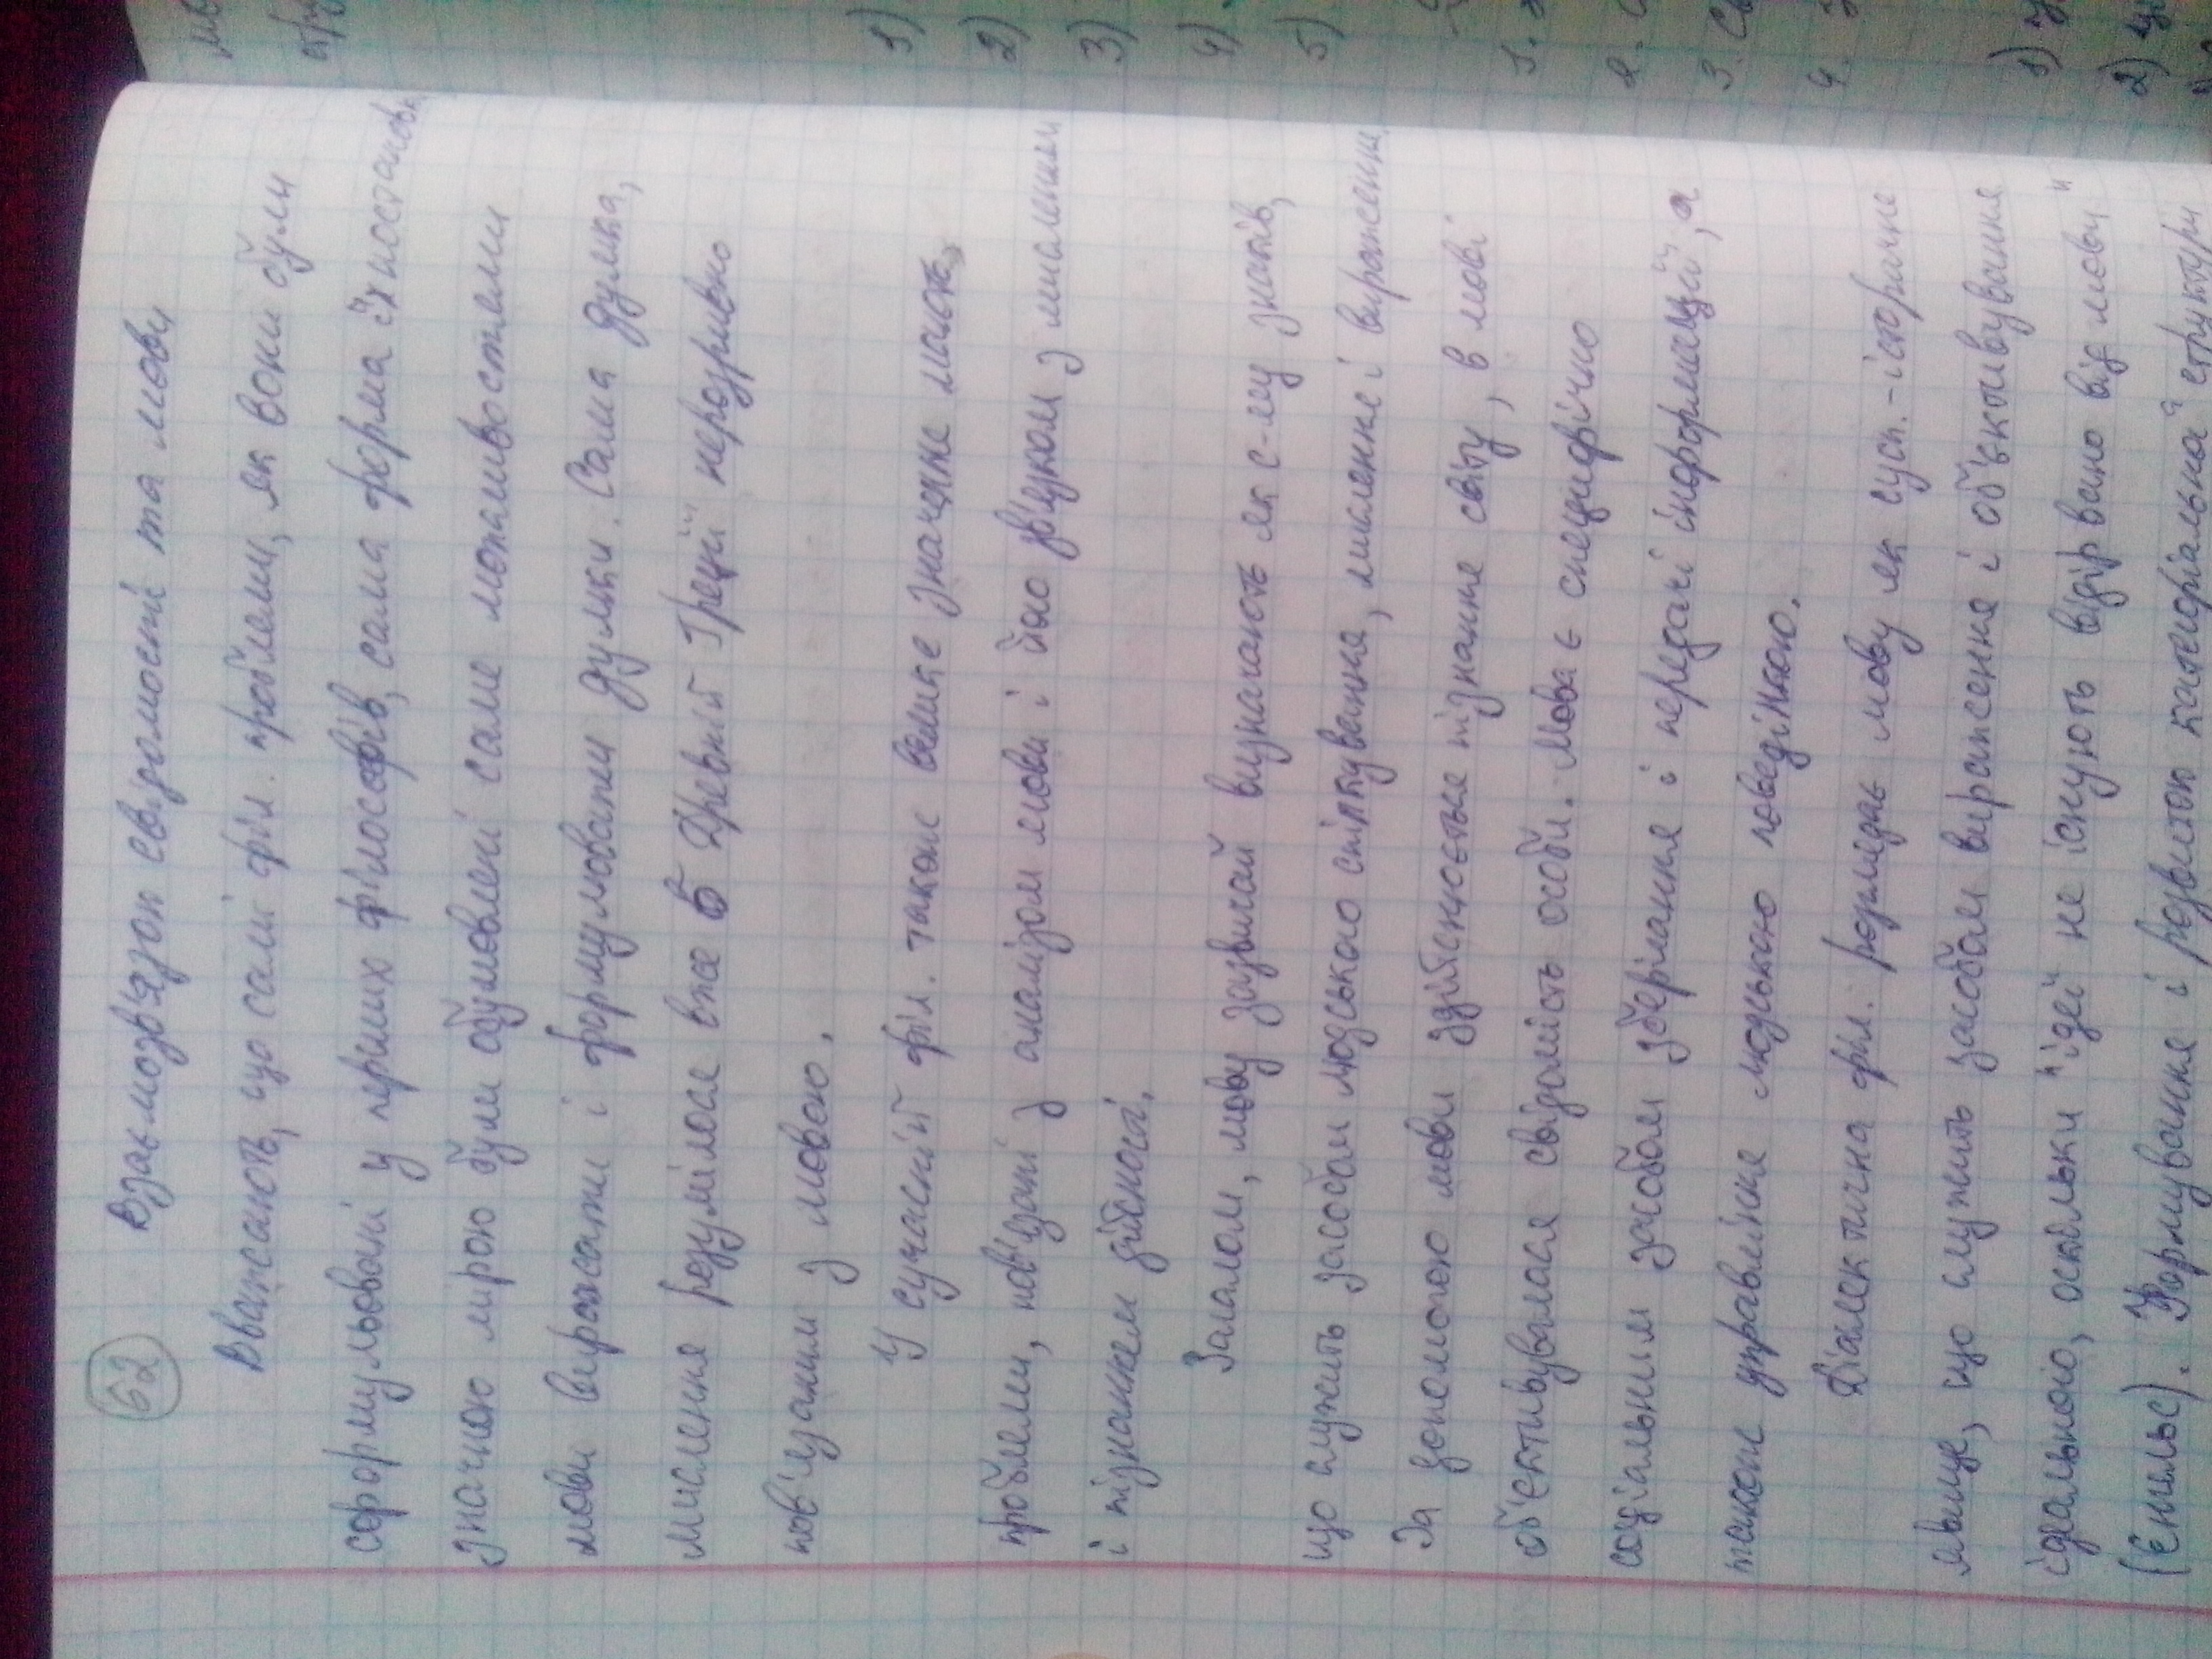 62 Взаємозв'язок свідомості та мови
Вважають, що самі філ. проблеми, як вони були
сформульовані у перших філософів, сама форма їх постановки
значною мірою були обумовлені саме можливостями
мови виражати і формулювати думки. Сама думка,
мислення розумілося вже в Древній Греції нерозривно
пов'язаним з мовою.
У сучасній філ. також велике значення мають
проблеми, пов'язані з аналізом мови і його зв'язком з мисленням
і пізнанням дійсності.
Загалом, мову зазвичай визначають як с-му знаків,
що служить засобом людського спілкування, мислення і вираження.
За допомогою мови здійснюється пізнання світу, в мові
об'єктивувалася свідомість особи. Мова є специфічно
соціальним засобом зберігання і передачі інформації, а
також управління людською поведінкою.
Діалектична філ. розглядає мову як сусп.-історичне
явище, що служить засобом вираження і об'єктивування
ідеального, оскільки "ідеї не існують відірвано від мови"
(Енгельс). Формування і розвиток категоріальної структури
1)
2)
3)
4)
5)
1.
2.
3. Св
4.
1)
2)